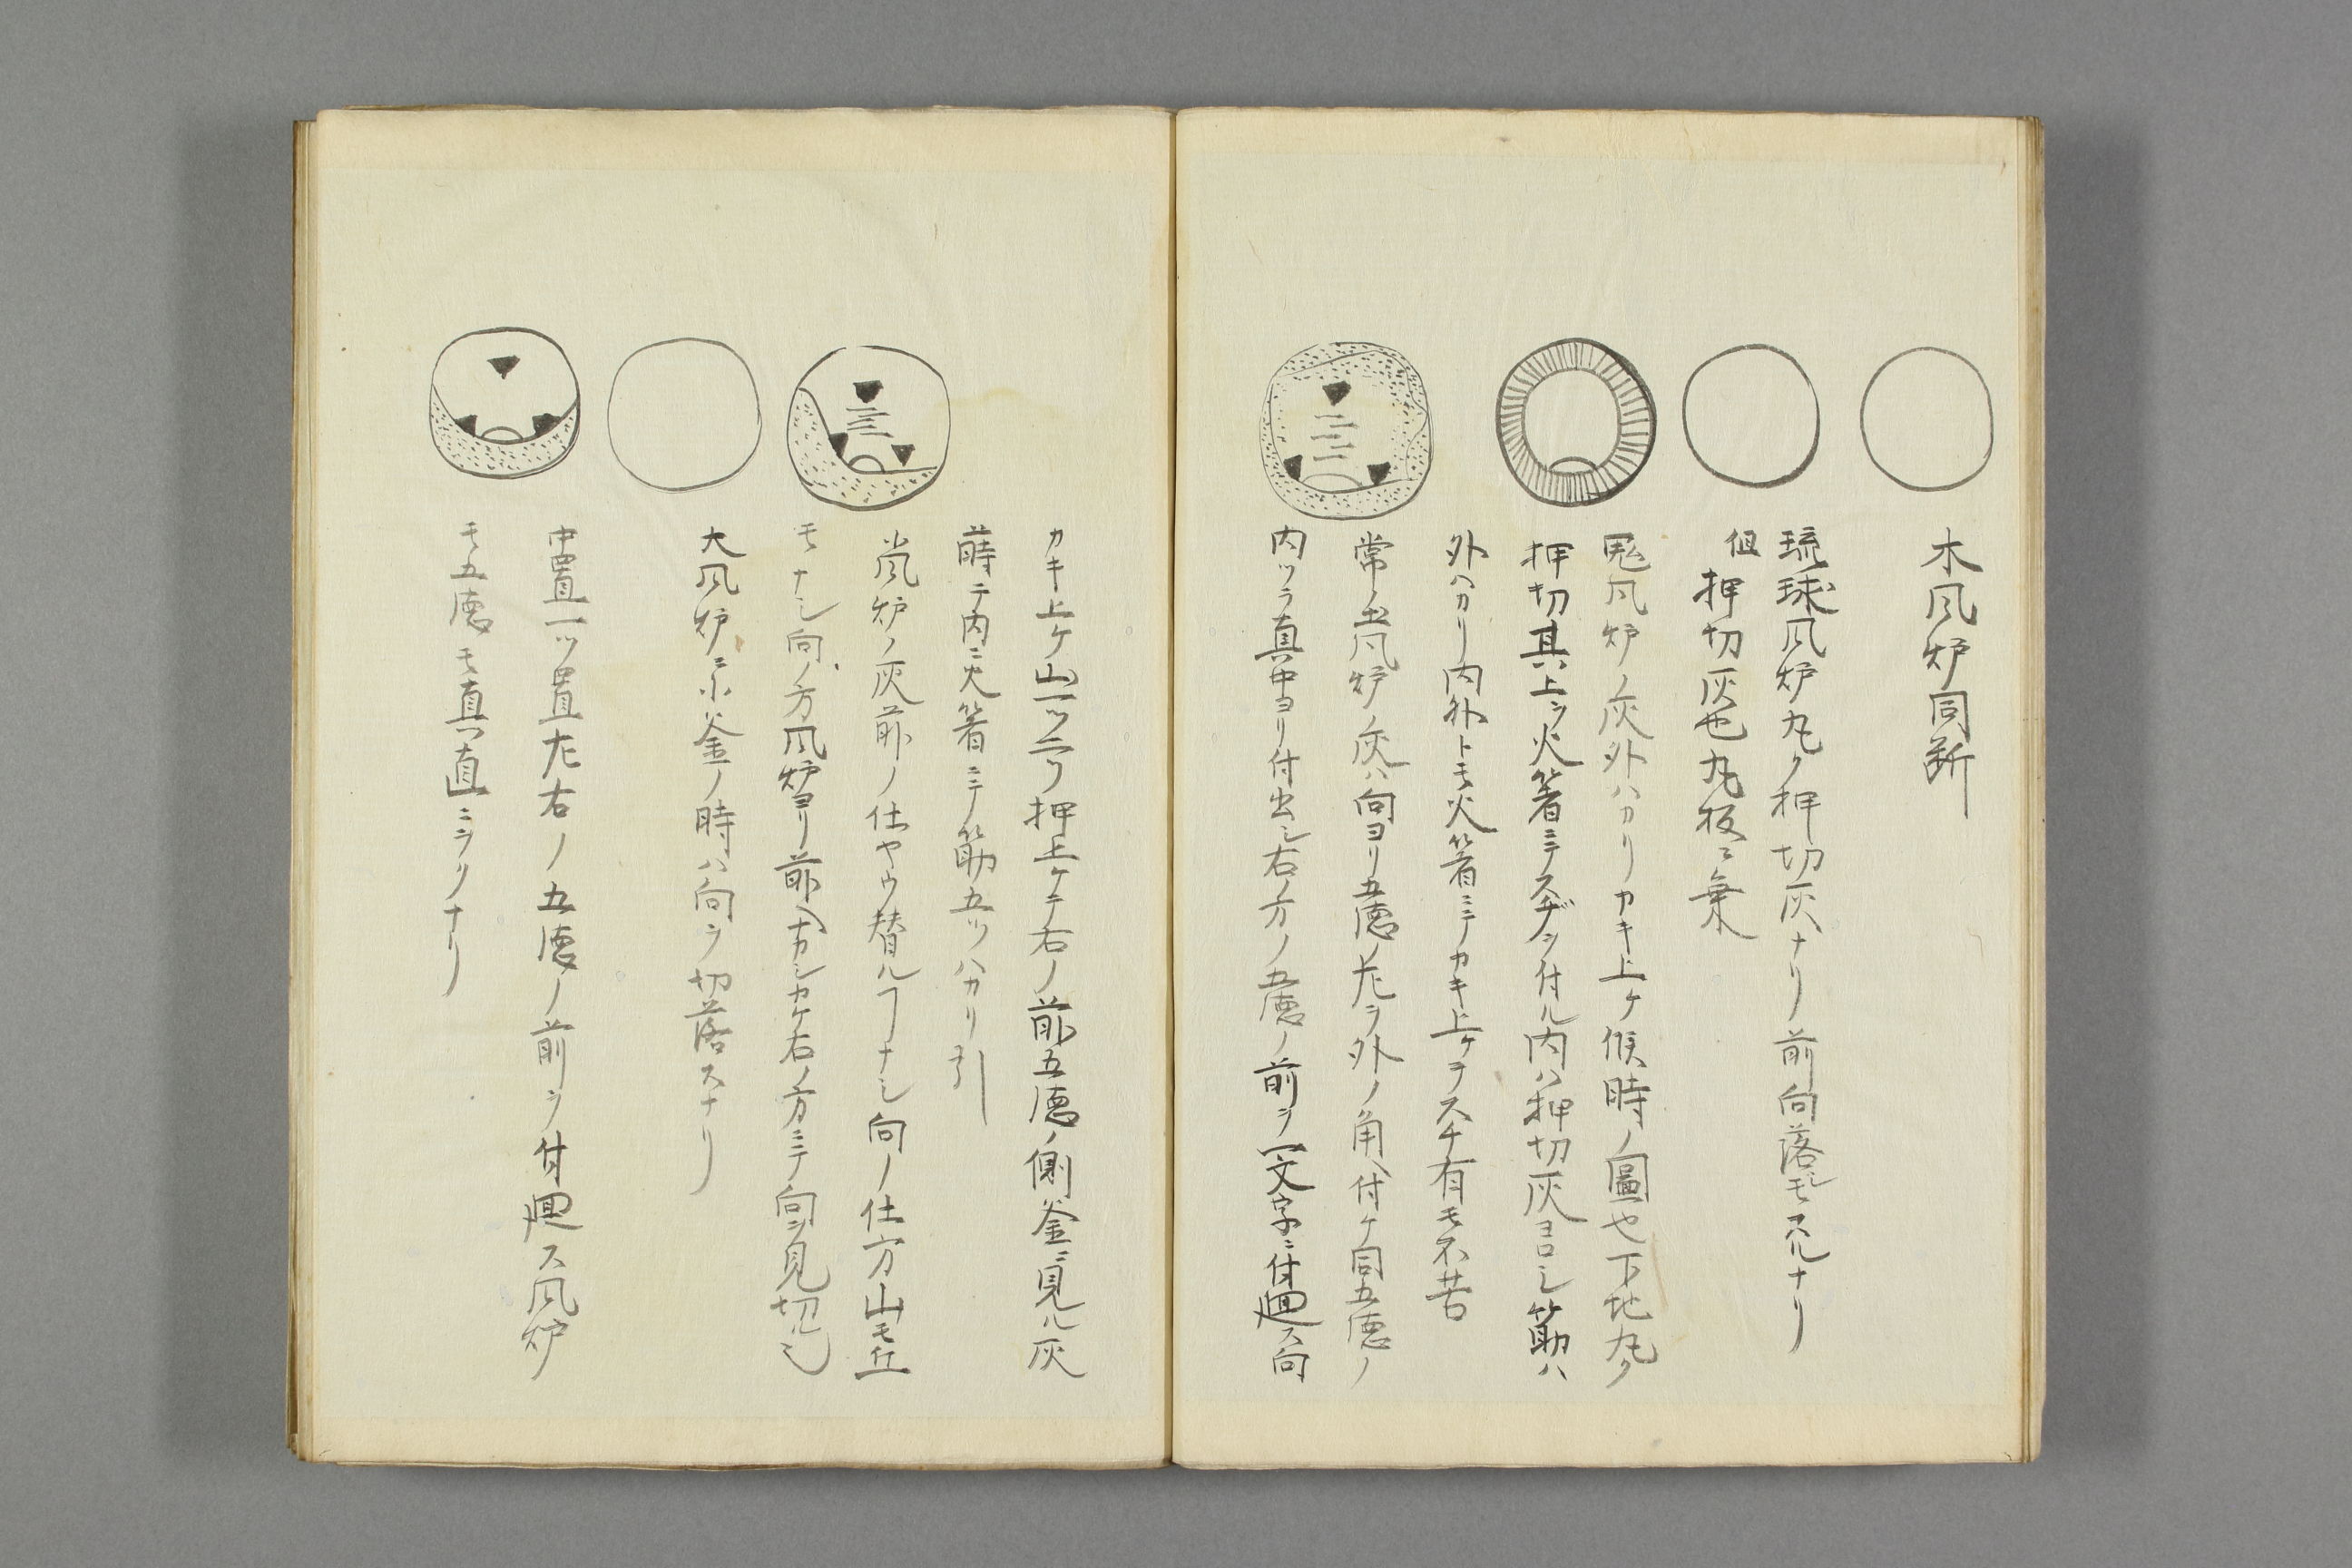 木風炉同断
琉球風炉丸ク押切灰ナリ前向落シモスルナリ
但押切灰也丸板ニ乗
風炉ノ灰外ハカリカキ上ケ候時ノ圖也下地丸ク
押切其上ヲ火箸ニテスヂヲ付ル内ハ押切灰ヨロシ筋ハ
外ハカリ内外トモ火箸ニテカキ上ケヲスチ有モ不苦
常ノ土風炉ノ灰ハ向ヨリ五徳ノ左ヲ外ノ角ヘ付ケ同五徳ノ
内ツラ真中ヨリ付出シ右ノ方ノ五徳ノ前ヲ一文字ニ付廻ス向
カキ上ケ山一ツ二ツ押上ケテ右ノ前五徳ノ側釜ニ見ル灰
蒔テ内ニ火箸ニテ筋五ツハカリ引
風炉ノ灰前ノ仕ヤウ替ルヿナシ向ノ仕方山モ丘
モナシ向ノ方風炉ヨリ前ヘナカシカケ右ノ方ニテ向ヲ見切ルヘシ
大風炉ニ小釜ノ時ハ向ヲ切落スナリ
中置一ツ置左右ノ五徳ノ前ヲ付廻ス風炉
モ五徳モ真直ニヲクナリ